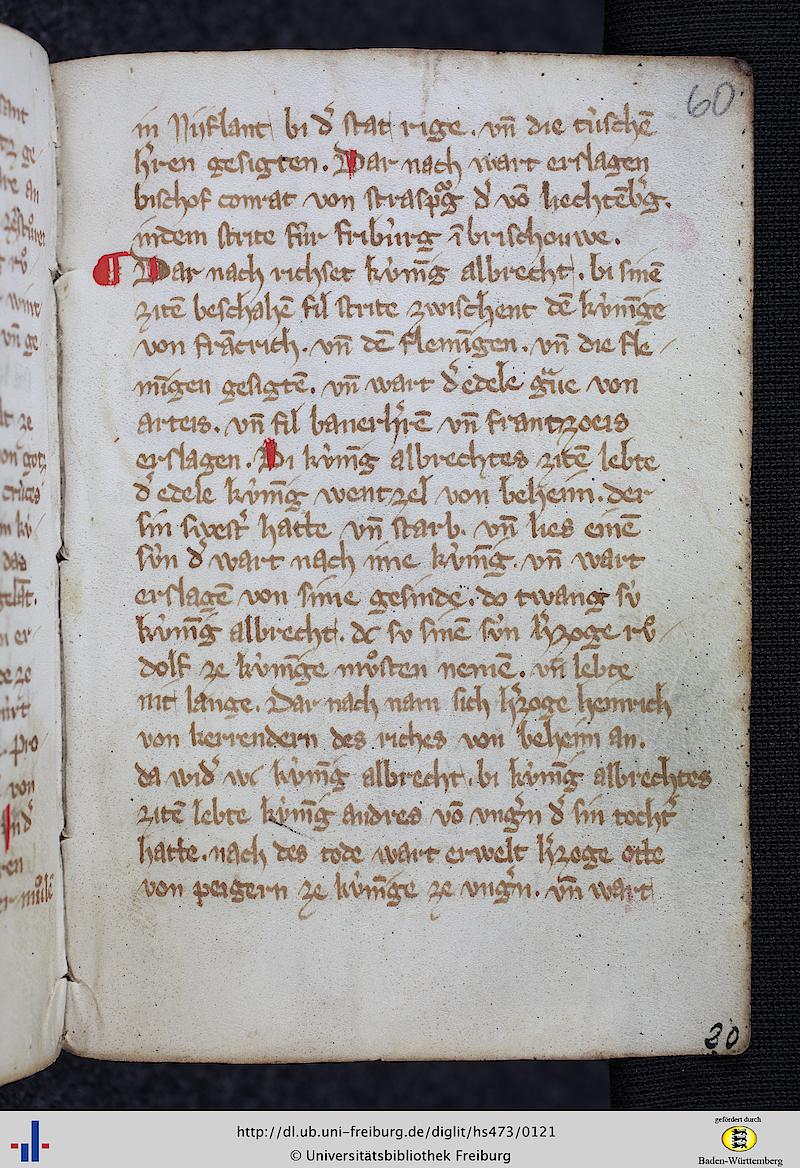 60
in Nijflant bi d͛ stat rige. vn̄ die tu̍schē
h͛ren gesigten. Dar nach wart erslagen
bischof conrat von straspo͛g d͛ vō liechtēb͛g.
indem strite fu̍r fribu̍rg ī brischouwe.
¶ Dar nach richset ku̍nīg albrecht. bi sinē
zitē beschahē fil strite zwischent dē ku̍nīge
von frācrich. vn̄ dē flemīgen. vn̄ die fle-
mīgen gesigtē. vn̄ wart d͛ edele von
arteis. vn̄ fil banerh͛rē vn̄ frantzoeis
erslagen. Bi ku̍nīg albrechtes zitē lebte
d͛ edele ku̍nīg wentzel von beheim. der
sin swest͛ hatte vn̄ starb. vn̄ lies einē
su̍n d͛ wart nach ime ku̍nīg. vn̄ wart
erslagē von sime gesinde. do twang su̍
ku̍nīg albrecht. dc su sinē su̍n h͛zoge ru̍-
dolf ze ku̍nīge mu̍sten nemē. vn̄ lebte
nit lange. Dar nach nam sich h͛zoge heinrich
von kerrendern des riches von beheim an.
da wid͛ wc ku̍nīg albrecht. bi ku̍nīg albrechtes
zitē lebte ku̍nīg andres vō vng͛n d͛ sin tocht͛
hatte. nach des tode wart erwelt h͛zoge otte
von peigern ze ku̍nīge ze vng͛n. vn̄ wart
30
http://dl.ub.uni-freiburg.de/diglit/hs473/0121
© Universitätsbibliothek Freiburg
gefördert durch
Baden-Württemberg